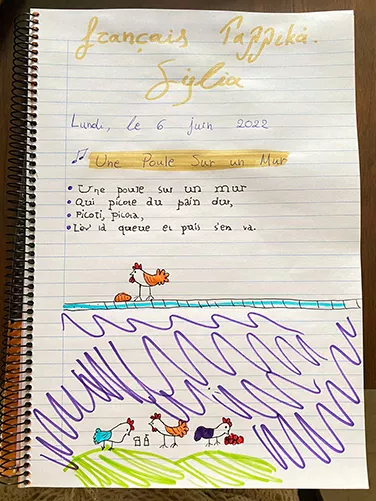 français Γαλλικά.
Lundi, le 6 juin 2022
Une Poule Sur un Mur
Une poule sur un mur
Qui picore du pain dur,
Picoti, picota,
Lèv' la queue et puis s'en va.